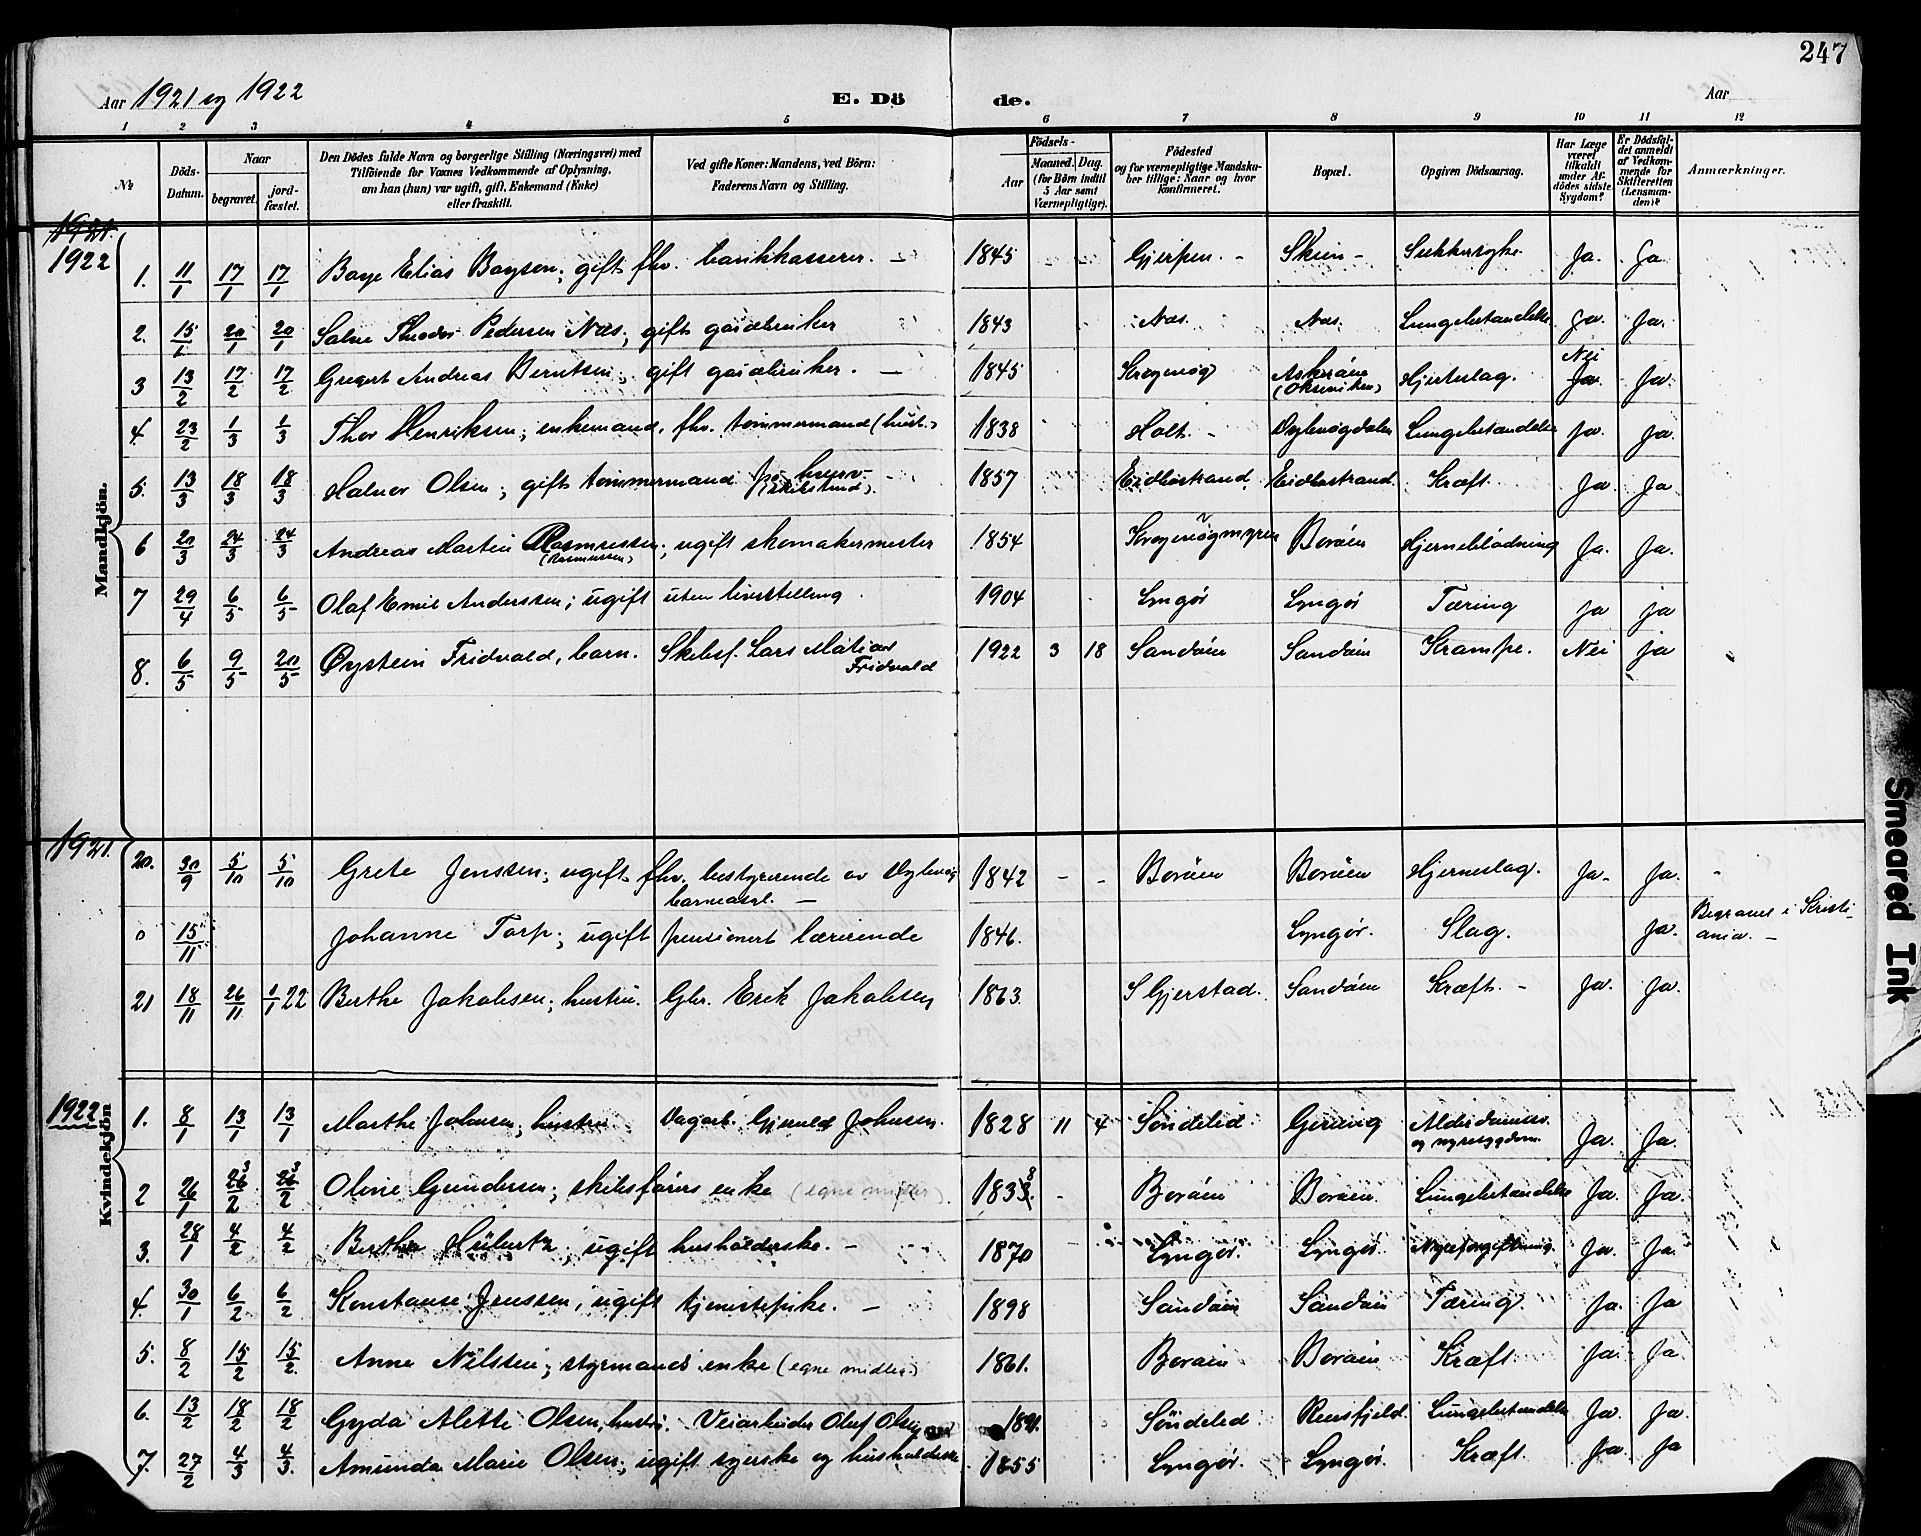 247
Aar 1921 og 1922 E. Dö de. Aar
1 2 3 4 5 6 7 8 9 10 11 12
No Döds-Datum. Naar begravet. jord-fæstet. Den Dödes fulde Navn og borgerlige Stilling (Næringsvei) med Tilföiende for Voxnes Vedkommende af Oplysning, om han (hun) var ugift, gift, Enkemand (Enke) eller fraskilt. Ved gifte Koner: Mandens, ved Börn: Faderens Navn og Stilling. Födsels- Aar Maaned. Dag. (for Börn indtil 5 Aar samt Værnepligtige). Födested og for værnepligtige Mandskaber tillige: Naar og hvor Konfirmeret. Bopæl. Opgiven Dödsaarsag. Har Læge været tilkaldt under Afdödes sidste Sygdom? Er Dödsfaldet anmeldt af Vedkommende for Skifteretten (Lensmanden)? Anmærkninger.
1921.
1922
Mandkjön.
1. 11/1 17/1 17/1 Boye Elias Boysen; gift fhv. bankkasserer. — 1845 - - Gjerpen. - Skien - Sukkersyke. Ja. Ja
2. 15/1 20/1 20/1 Salve Theodor Pedersen Næs; gift gaardbruker 1843 Næs. Næs. Lungebetændelse Ja. Ja.
3 13/2 17/2 17/2 Gregert Andreas Berntsen; gift gaardbruker. — 1845 Krogenøg Askerøen Hjerteslag. Nei Ja. Ja.
4. 23/2 1/3 1/3 Thor Henriksen; enkemand, fhv. tømmermand 1838 Holt. - Dybvøgdalen Lungebetændelse Ja. Ja.
5. 13/3 18/3 18/3 Halvor Olsen; gift tømmermand 1857 Eidbostrand. Eidbostrand. Kræft. Ja. Ja
6 20/3 24/3 24/3 Andreas Martin Rasmussen; ugift skomakermester 1854 Krogenøgmyren Borøen Hjerneblødning Ja. Ja.
(Rasmussen)
7 29/4 6/5 6/5 Olaf Emil Anderssen; ugift uten livsstilling. 1904 Lyngør Lyngør Tæring ja ja
8. 6/5 9/5 20/5 Øystein Fridvald, barn. Skibsf. Lars Matias Fridvald 1922 3 18 Sandøen Sandøen Krampe. Nei ja
1921.
20. 30/9 5/10 5/10 Grete Jenssen; ugift fhv. bestyrerende av Dybvøg barneasyl. — 1842 - - Borøen Borøen Hjerneslag. Ja. Ja.
0 15/11 Johanne Torp; ugift pensionert lærerinde 1846. Lyngør. Slag. Ja. Begravet i Kristiania. —
21 18/11 26/11 1/1 22 Berthe Jakobsen; hustru. Gbr. Erik Jakobsen 1863. S Gjerstad. Sandøen Kræft. - Ja. Ja.
1922
Kvindekjön
1. 8/1 13/1 13/1 Marthe Johnsen; hustru. Dagarb. Gjeruld Johnsen. 1828 11 4 Søndeled. Gjervig Alderdomssv. og nyresygdom. Ja. Ja.
2 26/1 26/2 26/2 Oline Gundersen; skibsførers enke (egne midler) 1838. - Borøen Borøen. Lungebetændelse Ja. Ja.
3. 28/1 4/2 4/2 Berthe Hübertz; ugift husholderske. — 1870 Lyngør. Lyngør. Nyreforgiftning. Ja. Ja.
4. 30/1 6/2 6/2 Konstanse Jenssen; ugift tjenestepike. — 1898 Sandøen Sandøen Tæring. Ja. Ja
5. 8/2 15/2 15/2. Anne Nilsen; styrmands enke (egne midler.) 1861. Borøen Borøen Kræft Ja. Ja
6. 13/2 18/2 18/2 Gyda Alette Olsen, hustru. Veiarbeider Oluf Olsen 1891. Søndeled Rensfjeld. Lungebetændelse Ja. Ja.
7. 27/2 4/3 4/3. Amunda Marie Olsen; ugift syerske og husholderske 1855 Lyngør. Lyngør. Kræft. Ja. Ja
Smeared Ink